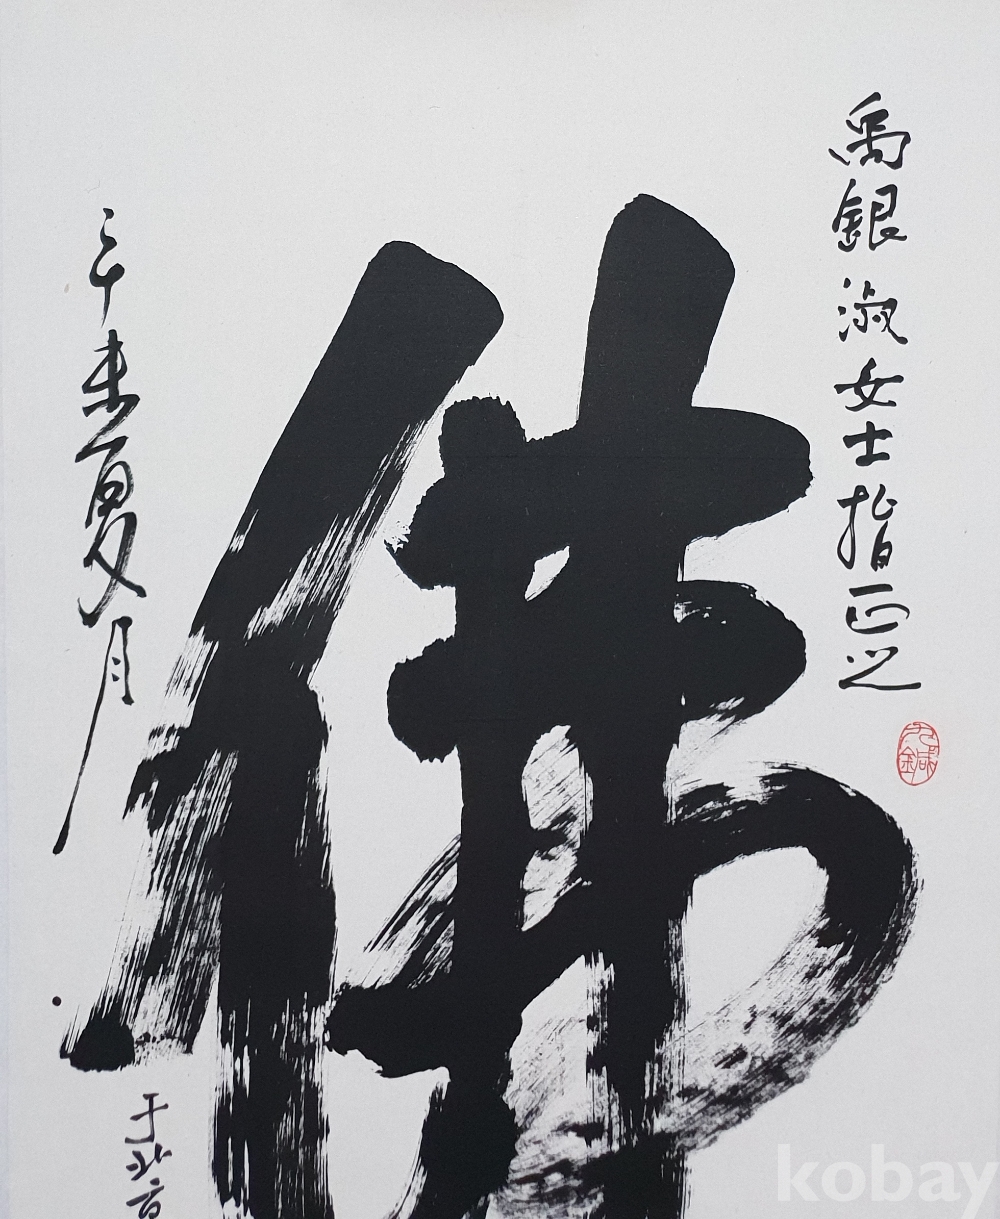 禹銀淑女士指正之
佛
辛未夏月
于北京
kobay